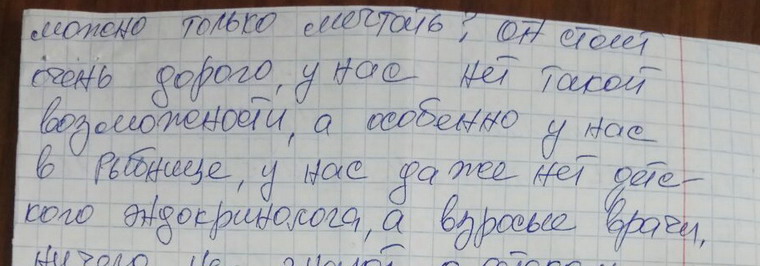 можно только мечтать, он стоит
очень дорого, у нас нет такой
возможности, а особенно у нас
в Рыбнице, у нас даже нет детс-
кого эндокринолога, а взрослые врачи,
ничего не